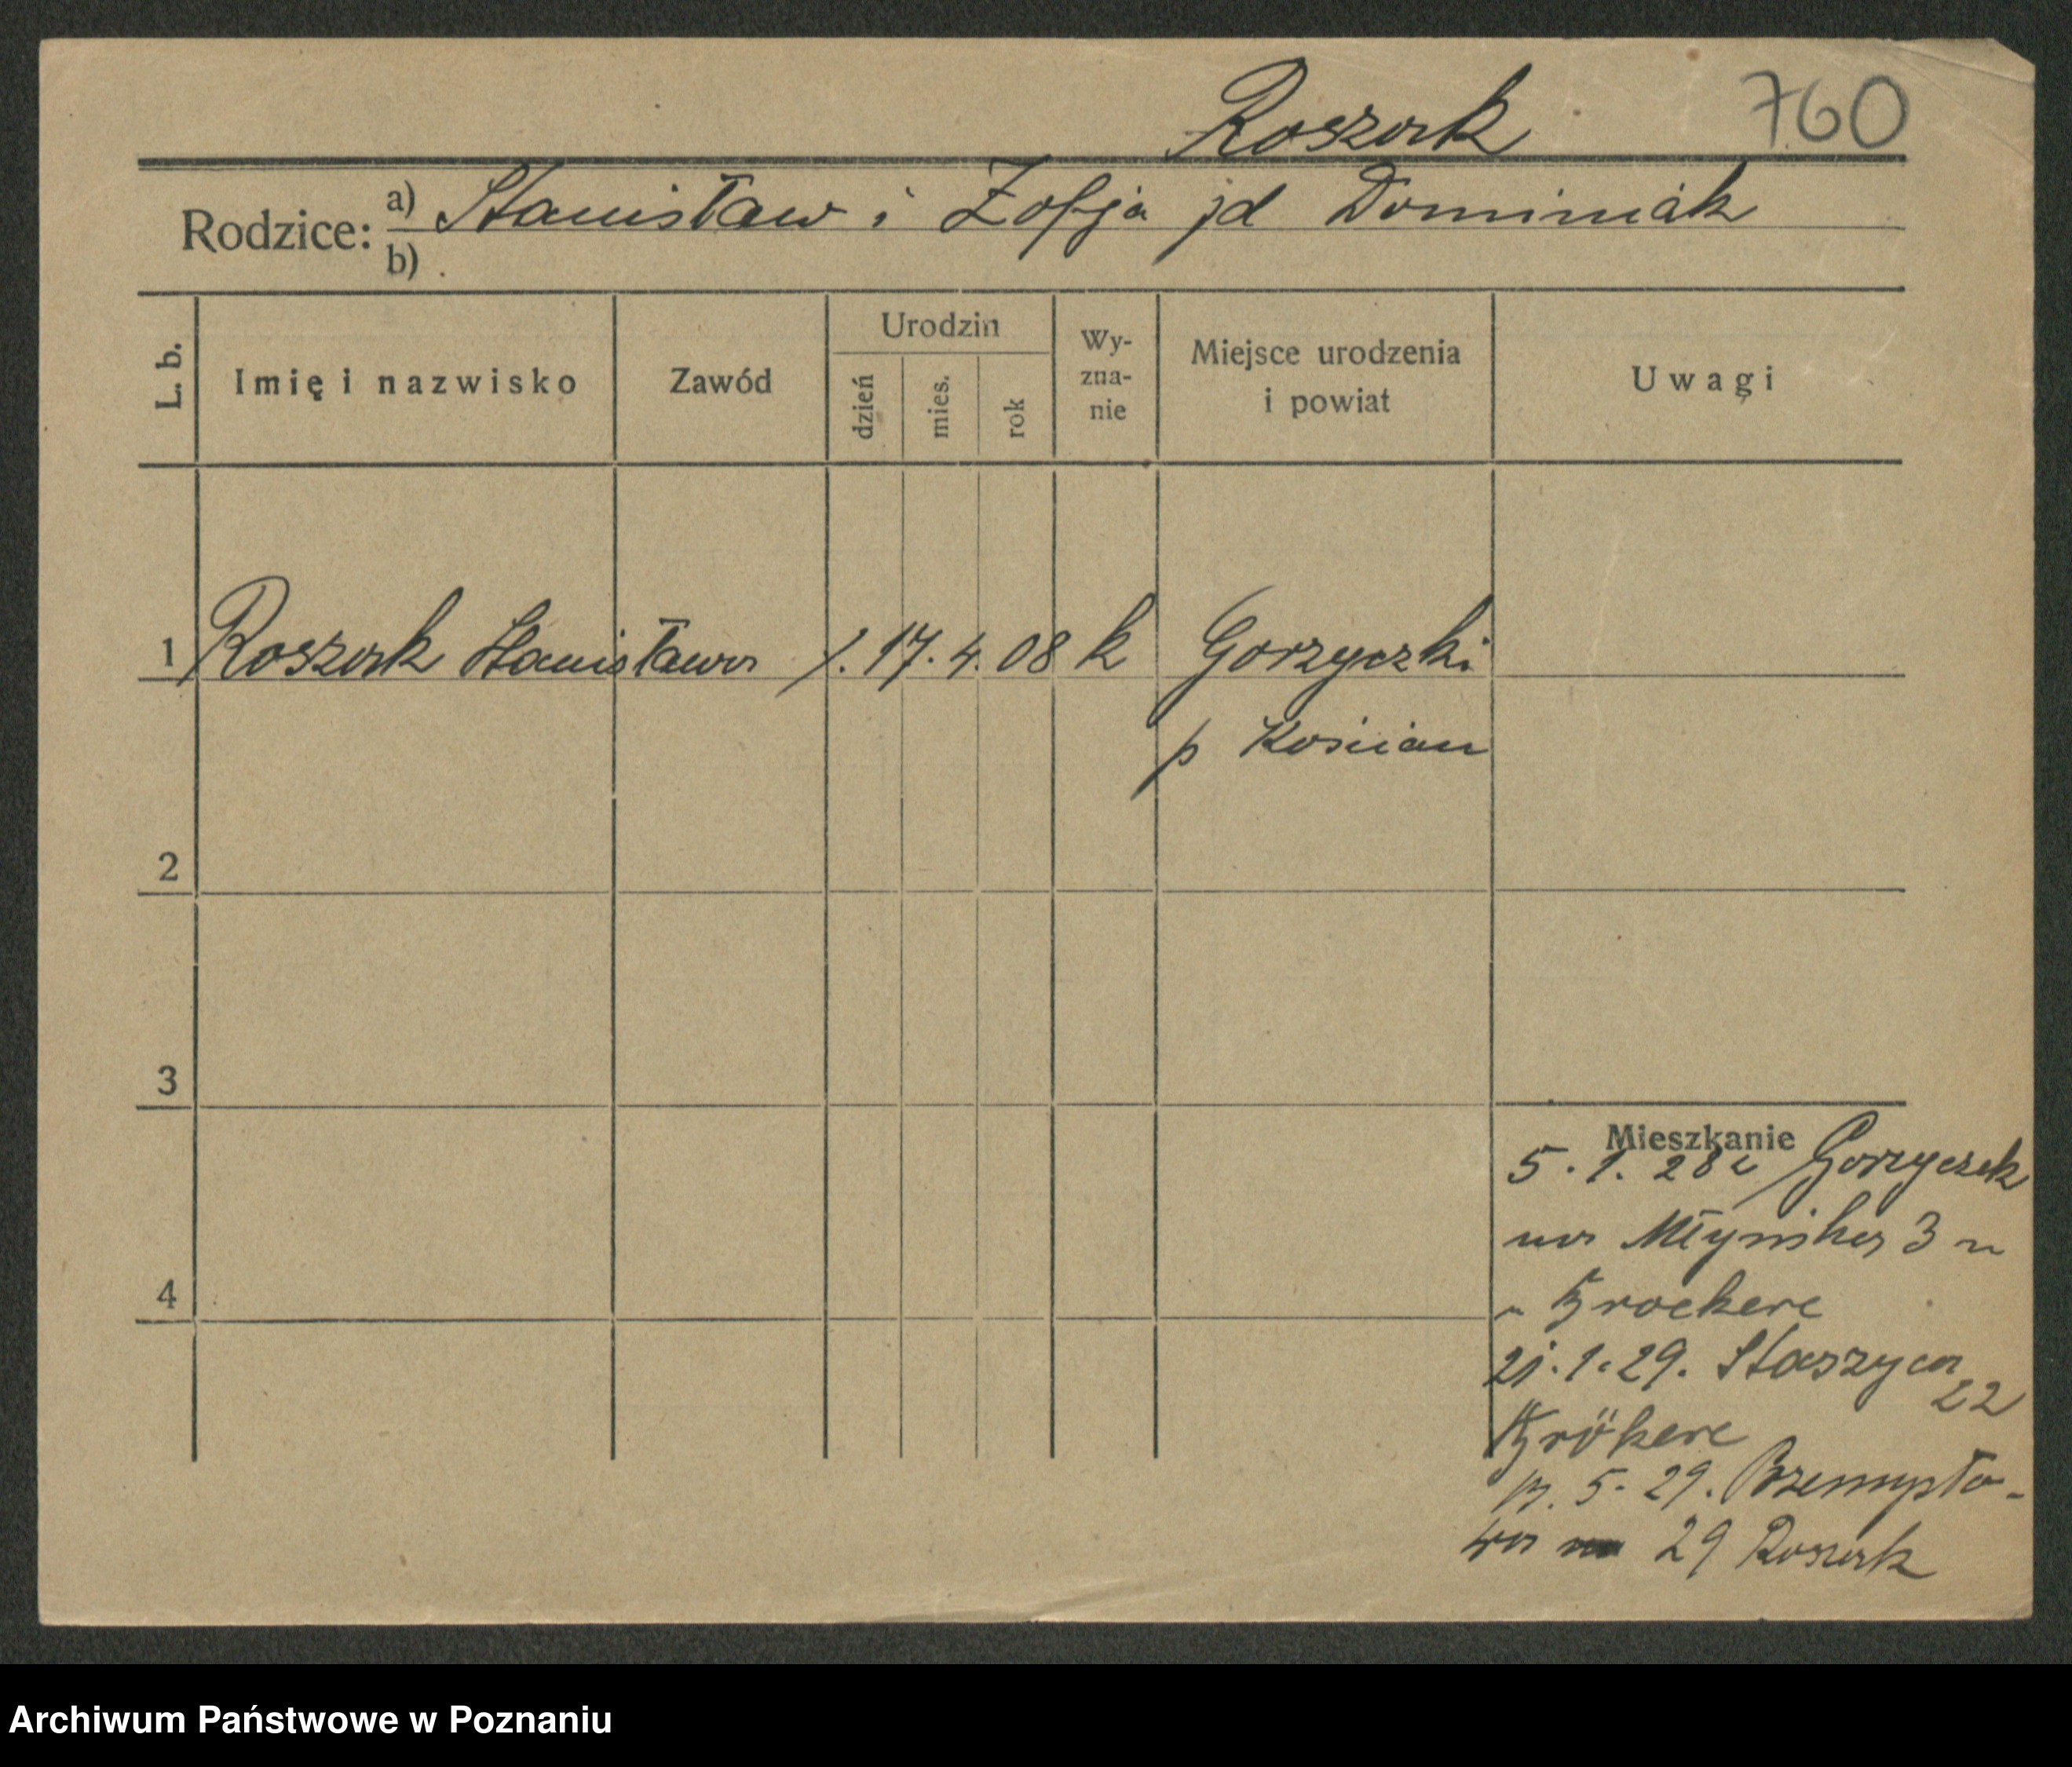 Roszak 760
Rodzice: a) Stanisław i Zofja jd Dominiak
b)
L. b. Imię i nazwisko Zawód Urodzin dzień mies. rok Wy-zna-nie Miejsce urodzenia i powiat Uwagi
1 Roszak Stanisława 17. 4. 08 k Gorzyczki
p Kościan
2
3
Mieszkanie
5. 1. 28 z Gorzyczek
na Młyńska 3
4
21. 1. 29. Staszyca
22
5. 29. Przemysło-
wa 29 Roszak
Archiwum Państwowe w Poznaniu